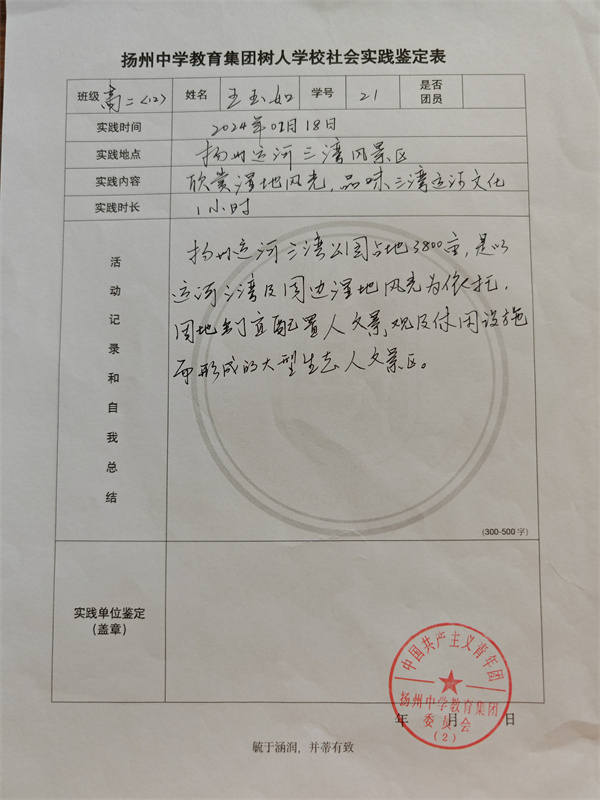 扬州中学教育集团树人学校社会实践鉴定表
班级 高二〈12〉 姓名 王玉如 学号 21 是否团员
实践时间 2024年02月18日
实践地点 扬州运河三湾风景区
实践内容 欣赏湿地风光,品味三湾运河文化
实践时长 1小时
活动记录和自我总结
扬州运河三湾公园占地3800亩,是以
运河三湾及周边湿地风光为依托,
因地制宜配置人文景观及休闲设施
而形成的大型生态人文景区。
(300-500字)
实践单位鉴定
(盖章)
中国共产主义青年团
扬州中学教育集团
委员会
(2)
年 月 日
毓于涵润,并蒂有致